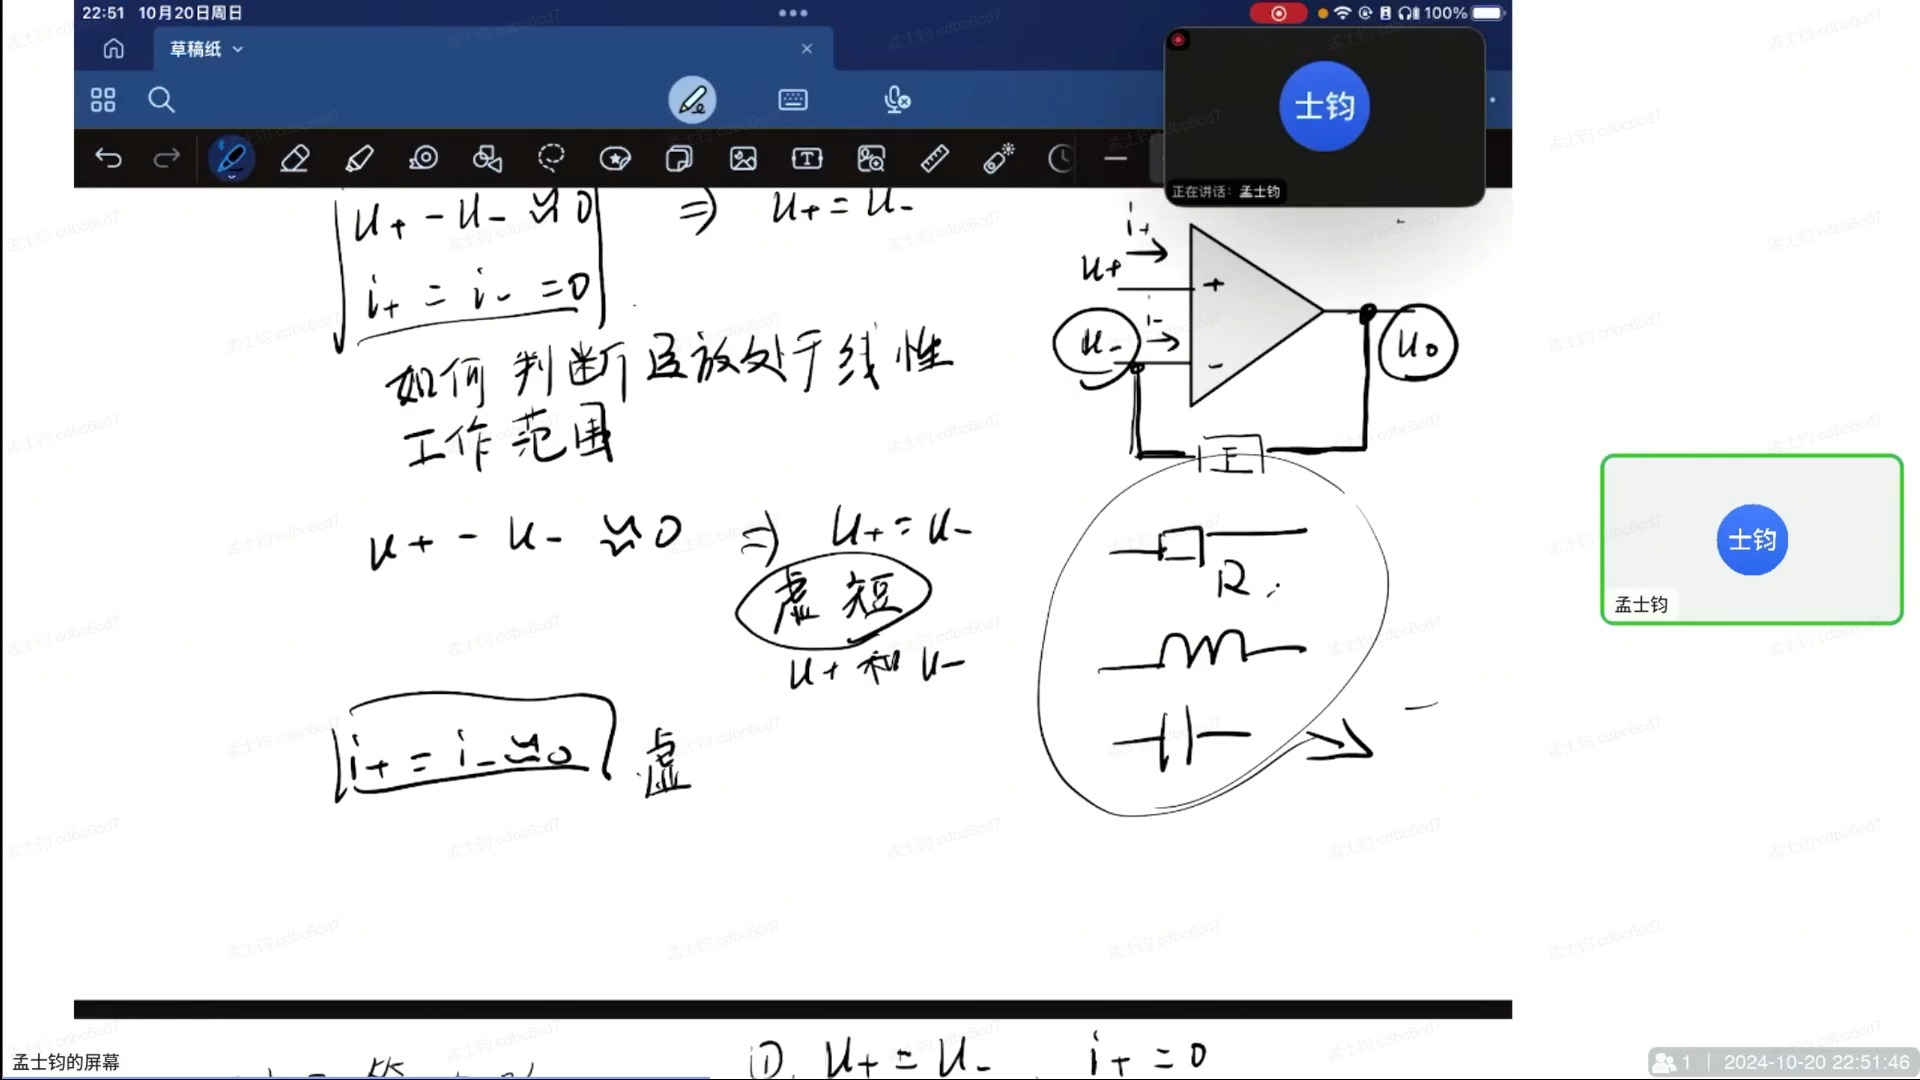 22:51 10月20日周日
100%
草稿纸
士钧
正在讲话: 孟士钧
u+ - u- ≈ 0 ⇒ u+ = u-
i+ = i- = 0
如何判断运放处于线性
工作范围
u+ - u- ≈ 0 ⇒ u+ = u-
虚短
u+ 和 u-
i+ = i- ≈ 0 虚
i+
u+
+
i-
u-
-
u0
R
士钧
孟士钧
① u+ = u- , i+ = 0
孟士钧的屏幕
1 | 2024-10-20 22:51:46
孟士钧 cdbc6cd7